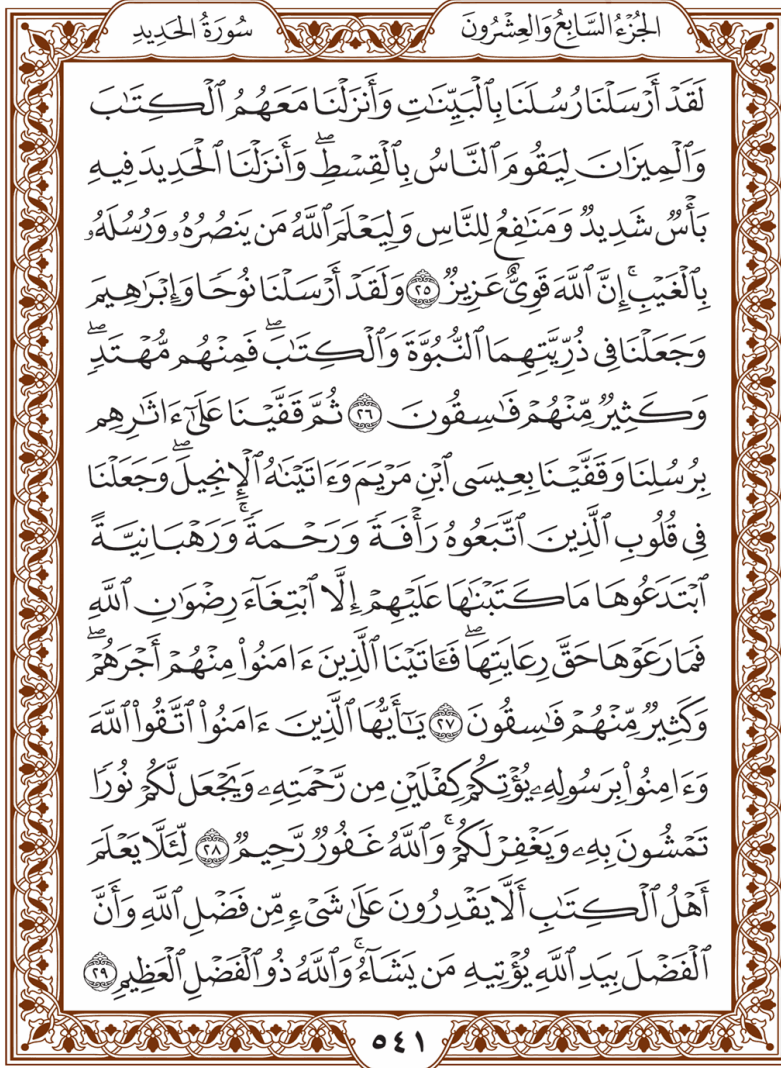 الجُزْءُ السَّابِعُ وَالعِشْرُونَ
سُورَةُ الحَدِيدِ
لَقَدْ أَرْسَلْنَا رُسُلَنَا بِٱلْبَيِّنَٰتِ وَأَنزَلْنَا مَعَهُمُ ٱلْكِتَٰبَ
وَٱلْمِيزَانَ لِيَقُومَ ٱلنَّاسُ بِٱلْقِسْطِۖ وَأَنزَلْنَا ٱلْحَدِيدَ فِيهِ
بَأْسٌ شَدِيدٌ وَمَنَٰفِعُ لِلنَّاسِ وَلِيَعْلَمَ ٱللَّهُ مَن يَنصُرُهُۥ وَرُسُلَهُۥ
بِٱلْغَيْبِۚ إِنَّ ٱللَّهَ قَوِيٌّ عَزِيزٌ ٢٥ وَلَقَدْ أَرْسَلْنَا نُوحًا وَإِبْرَٰهِيمَ
وَجَعَلْنَا فِى ذُرِّيَّتِهِمَا ٱلنُّبُوَّةَ وَٱلْكِتَٰبَۖ فَمِنْهُم مُّهْتَدٍۖ
وَكَثِيرٌ مِّنْهُمْ فَٰسِقُونَ ٢٦ ثُمَّ قَفَّيْنَا عَلَىٰٓ ءَاثَٰرِهِم
بِرُسُلِنَا وَقَفَّيْنَا بِعِيسَى ٱبْنِ مَرْيَمَ وَءَاتَيْنَٰهُ ٱلْإِنجِيلَۖ وَجَعَلْنَا
فِى قُلُوبِ ٱلَّذِينَ ٱتَّبَعُوهُ رَأْفَةً وَرَحْمَةًۚ وَرَهْبَانِيَّةً
ٱبْتَدَعُوهَا مَا كَتَبْنَٰهَا عَلَيْهِمْ إِلَّا ٱبْتِغَآءَ رِضْوَٰنِ ٱللَّهِ
فَمَا رَعَوْهَا حَقَّ رِعَايَتِهَاۖ فَـَٔاتَيْنَا ٱلَّذِينَ ءَامَنُوا۟ مِنْهُمْ أَجْرَهُمْۖ
وَكَثِيرٌ مِّنْهُمْ فَٰسِقُونَ ٢٧ يَٰٓأَيُّهَا ٱلَّذِينَ ءَامَنُوا۟ ٱتَّقُوا۟ ٱللَّهَ
وَءَامِنُوا۟ بِرَسُولِهِۦ يُؤْتِكُمْ كِفْلَيْنِ مِن رَّحْمَتِهِۦ وَيَجْعَل لَّكُمْ نُورًا
تَمْشُونَ بِهِۦ وَيَغْفِرْ لَكُمْۚ وَٱللَّهُ غَفُورٌ رَّحِيمٌ ٢٨ لِّئَلَّا يَعْلَمَ
أَهْلُ ٱلْكِتَٰبِ أَلَّا يَقْدِرُونَ عَلَىٰ شَىْءٍ مِّن فَضْلِ ٱللَّهِ وَأَنَّ
ٱلْفَضْلَ بِيَدِ ٱللَّهِ يُؤْتِيهِ مَن يَشَآءُۚ وَٱللَّهُ ذُو ٱلْفَضْلِ ٱلْعَظِيمِ ٢٩
٥٤١